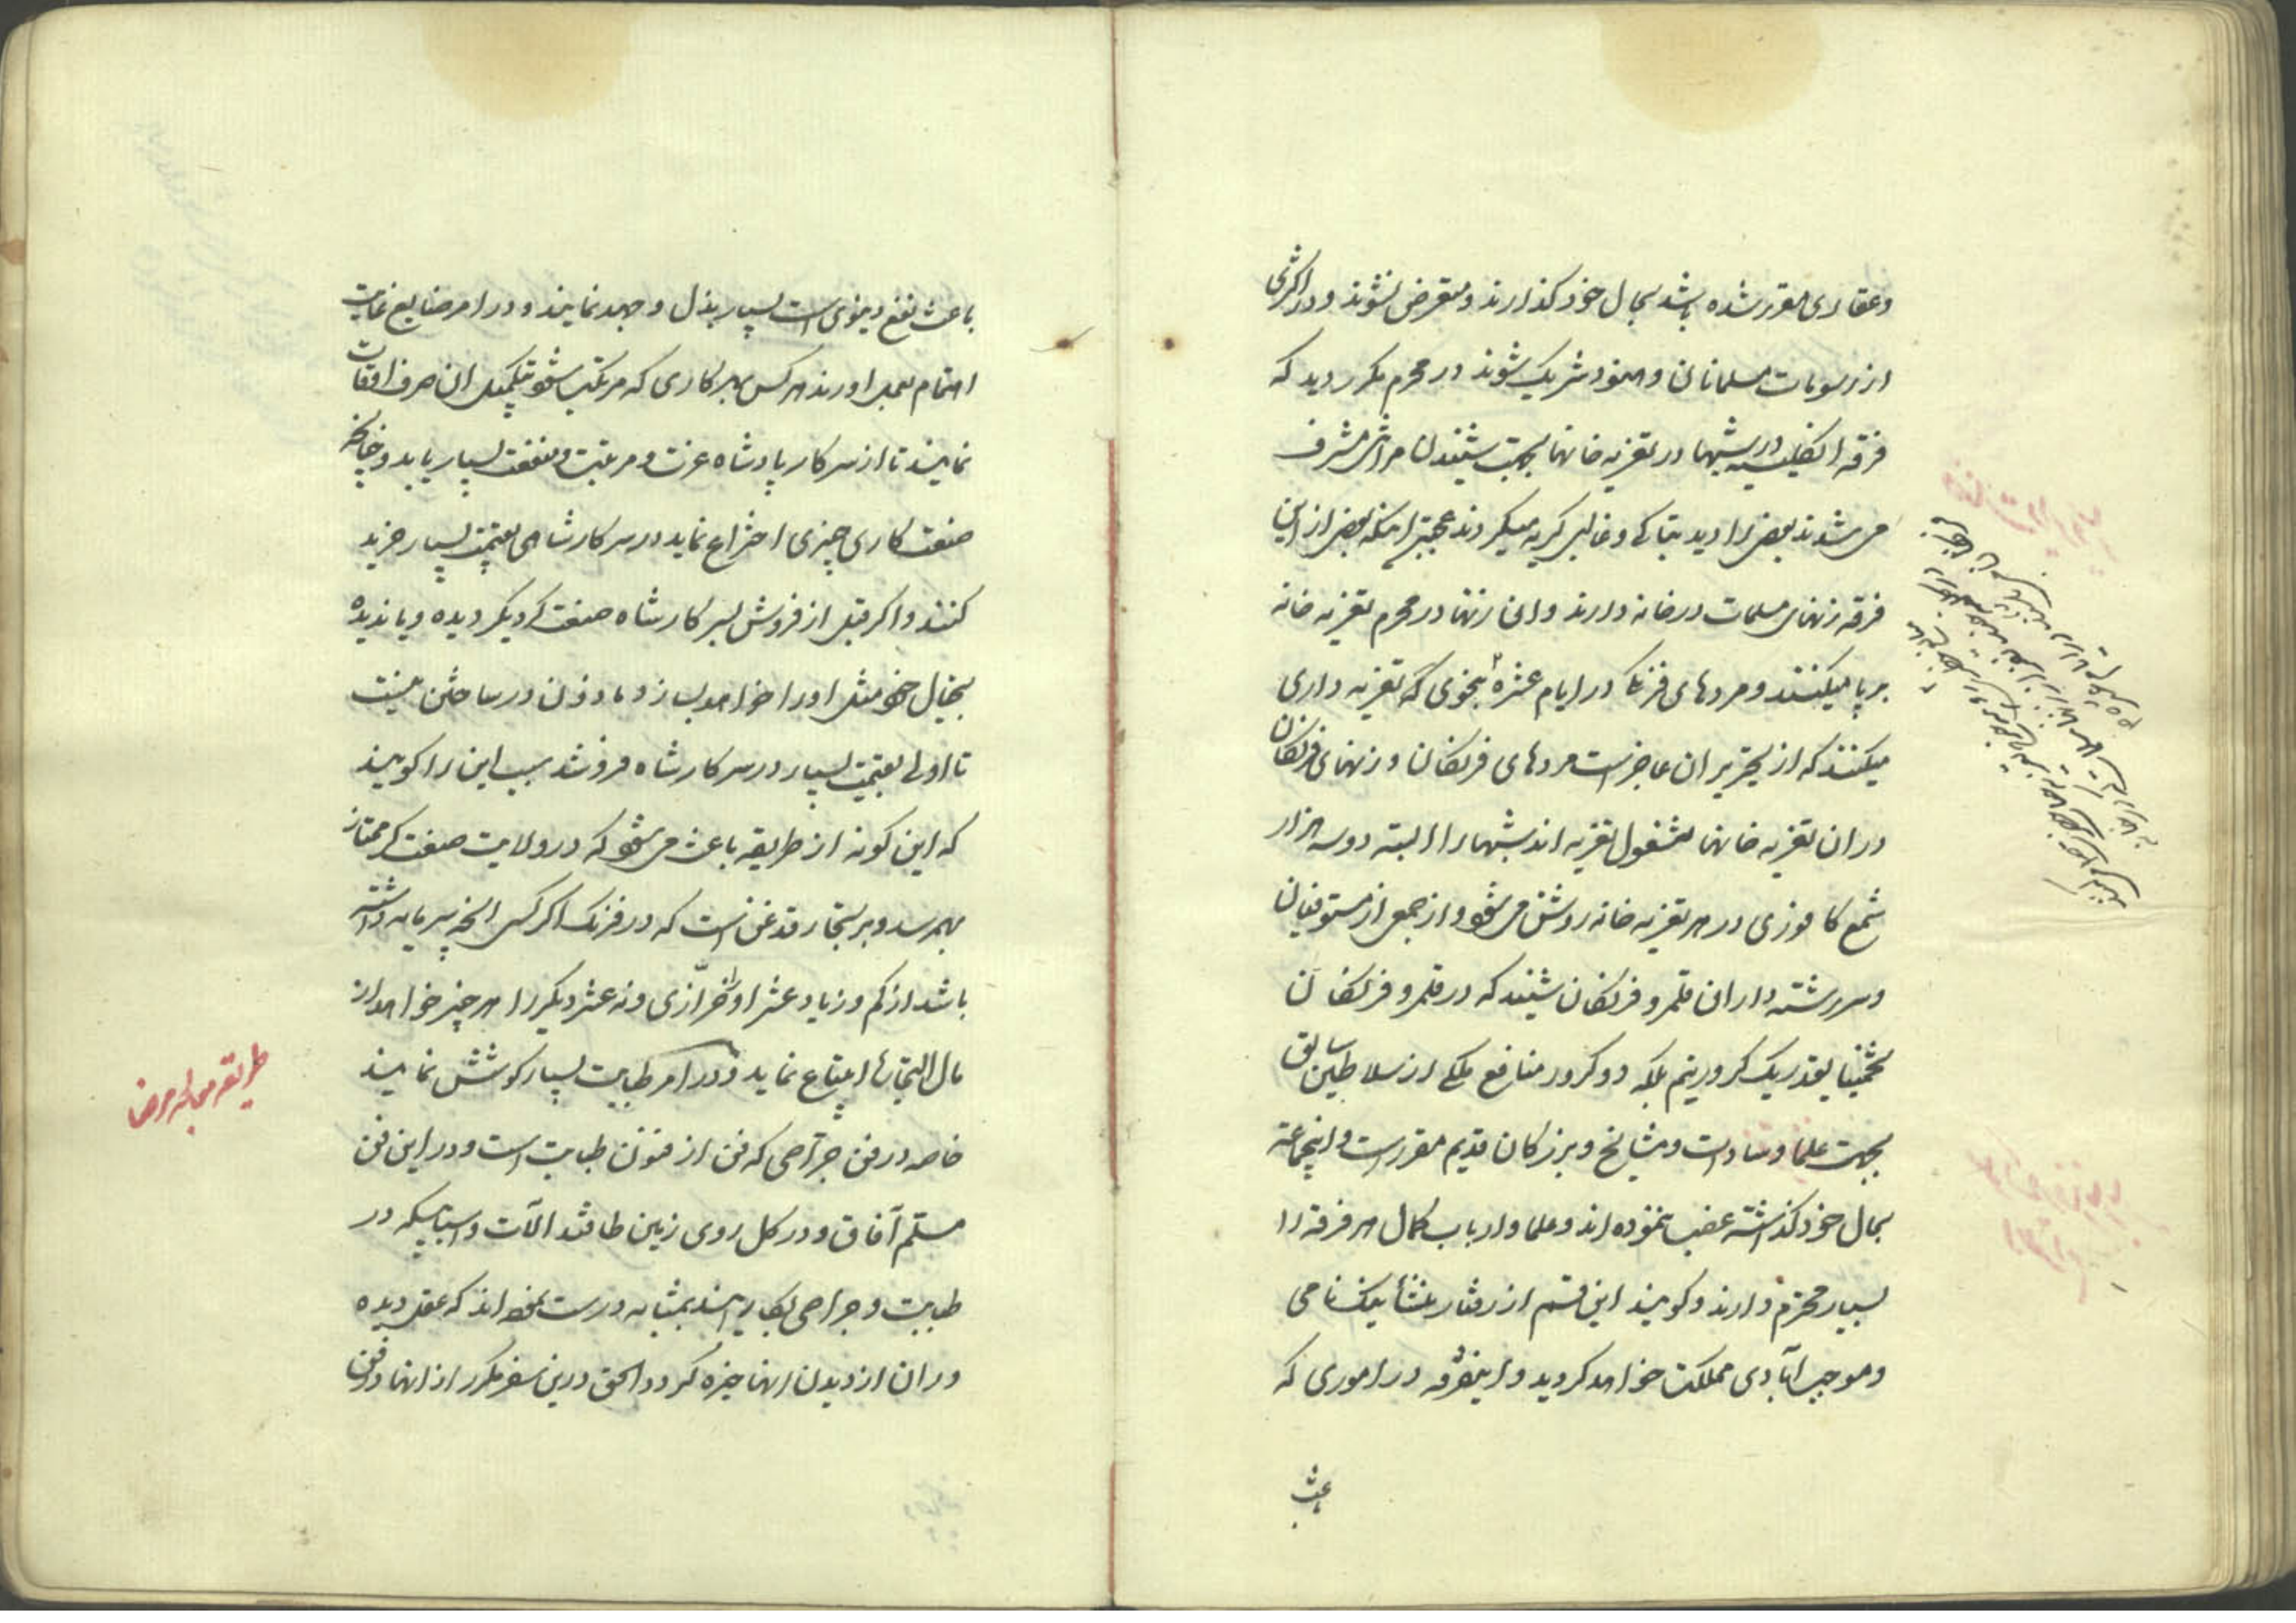 وعقاری مقرر شده باشد بحال خود گذارند و متعرض نشوند و در اکثری
از رسومات مسلمانان و هنود شریک شوند در محرم مکرر دید که
فرقه انگلیسیه در شبها در تعزیه خانها بجهت شنیدن مراثی مشرف
می شدند بعضی را دید بتباکی و غالبی گریه میکردند عجبتر اینکه بعضی از این
فرقه زنهای مسلمات در خانه دارند و ان زنها در محرم تعزیه خانه
بر پا میکنند و مردهای فرنگ در ایام عشره بنحوی که تعزیه داری
میکنند که از تحریر ان عاجز است مردهای فرنگان و زنهای فرنگان
در ان تعزیه خانها مشغول تعزیه اند شبها را البته دو سه هزار
شمع کافوری در هر تعزیه خانه روشن می شود و از جمعی از مستوفیان
و سررشته داران قلمرو فرنگان شنیدند که در قلمرو فرنگان
تخمینا بقدر یک کرور و نیم بلکه دو کرور منافع ملکی از سلاطین سابق
بجهت علما و سادات و مشایخ و بزرگان قدیم مقرر است و اینجماعه
بحال خود گذاشته غصب ننموده اند و علما و ارباب کمال هر فرقه را
بسیار محترم دارند و گویند این قسم از رفتار منشأ نیک نامی
و موجب آبادی مملکت خواهد گردید و اینفرقه در اموری که
باعث
باعث نفع دنیوی است بسیار بذل و جهد نمایند و در امر صنایع نهایت
اهتمام بعمل اورند هر کس بهر کاری که مرتکب شود بتکمیل ان صرف اوقات
نمایند تا از سرکار پادشاه عزت و مرتبت و منفعت بسیار یابد و چنانچه
صنعت کاری چیزی اختراع نماید در سرکار شاهی بقیمت بسیار خرید
کنند و اگر قبل از فروش بسرکار شاه صنعت گر دیگر دیده و یا ندیده
بخیال خود مثل اورا خواهد بسازد ماذون در ساختن نیست
تا اول بقیمت بسیار در سرکار شاه فروشد سبب این را گویند
که این گونه از طریقه باعث می شود که در ولایت صنعت گر ممتاز
بهم رسد و بر تجار قدغن است که در فرنگ اگر کسی انچه سرمایه داشته
باشد از کم و زیاد عشر او خرازی و نه عشر دیگر را هر چیز خواهد از
مال التجاره ابتیاع نماید و در امر طبابت بسیار کوشش نمایند
خاصه در فن جراحی که فن از فنون طبابت است و در این فن
مسلم آفاق و در کل روی زمین طاقند الات و اسبابیکه در
طبابت و جراحی بکار برند بمثابه درست نموده اند که عقل دیده
وران از دیدن انها خیره گردد الحق درین سفر مکرر از انها در فن
طریقه معالجه مرضا